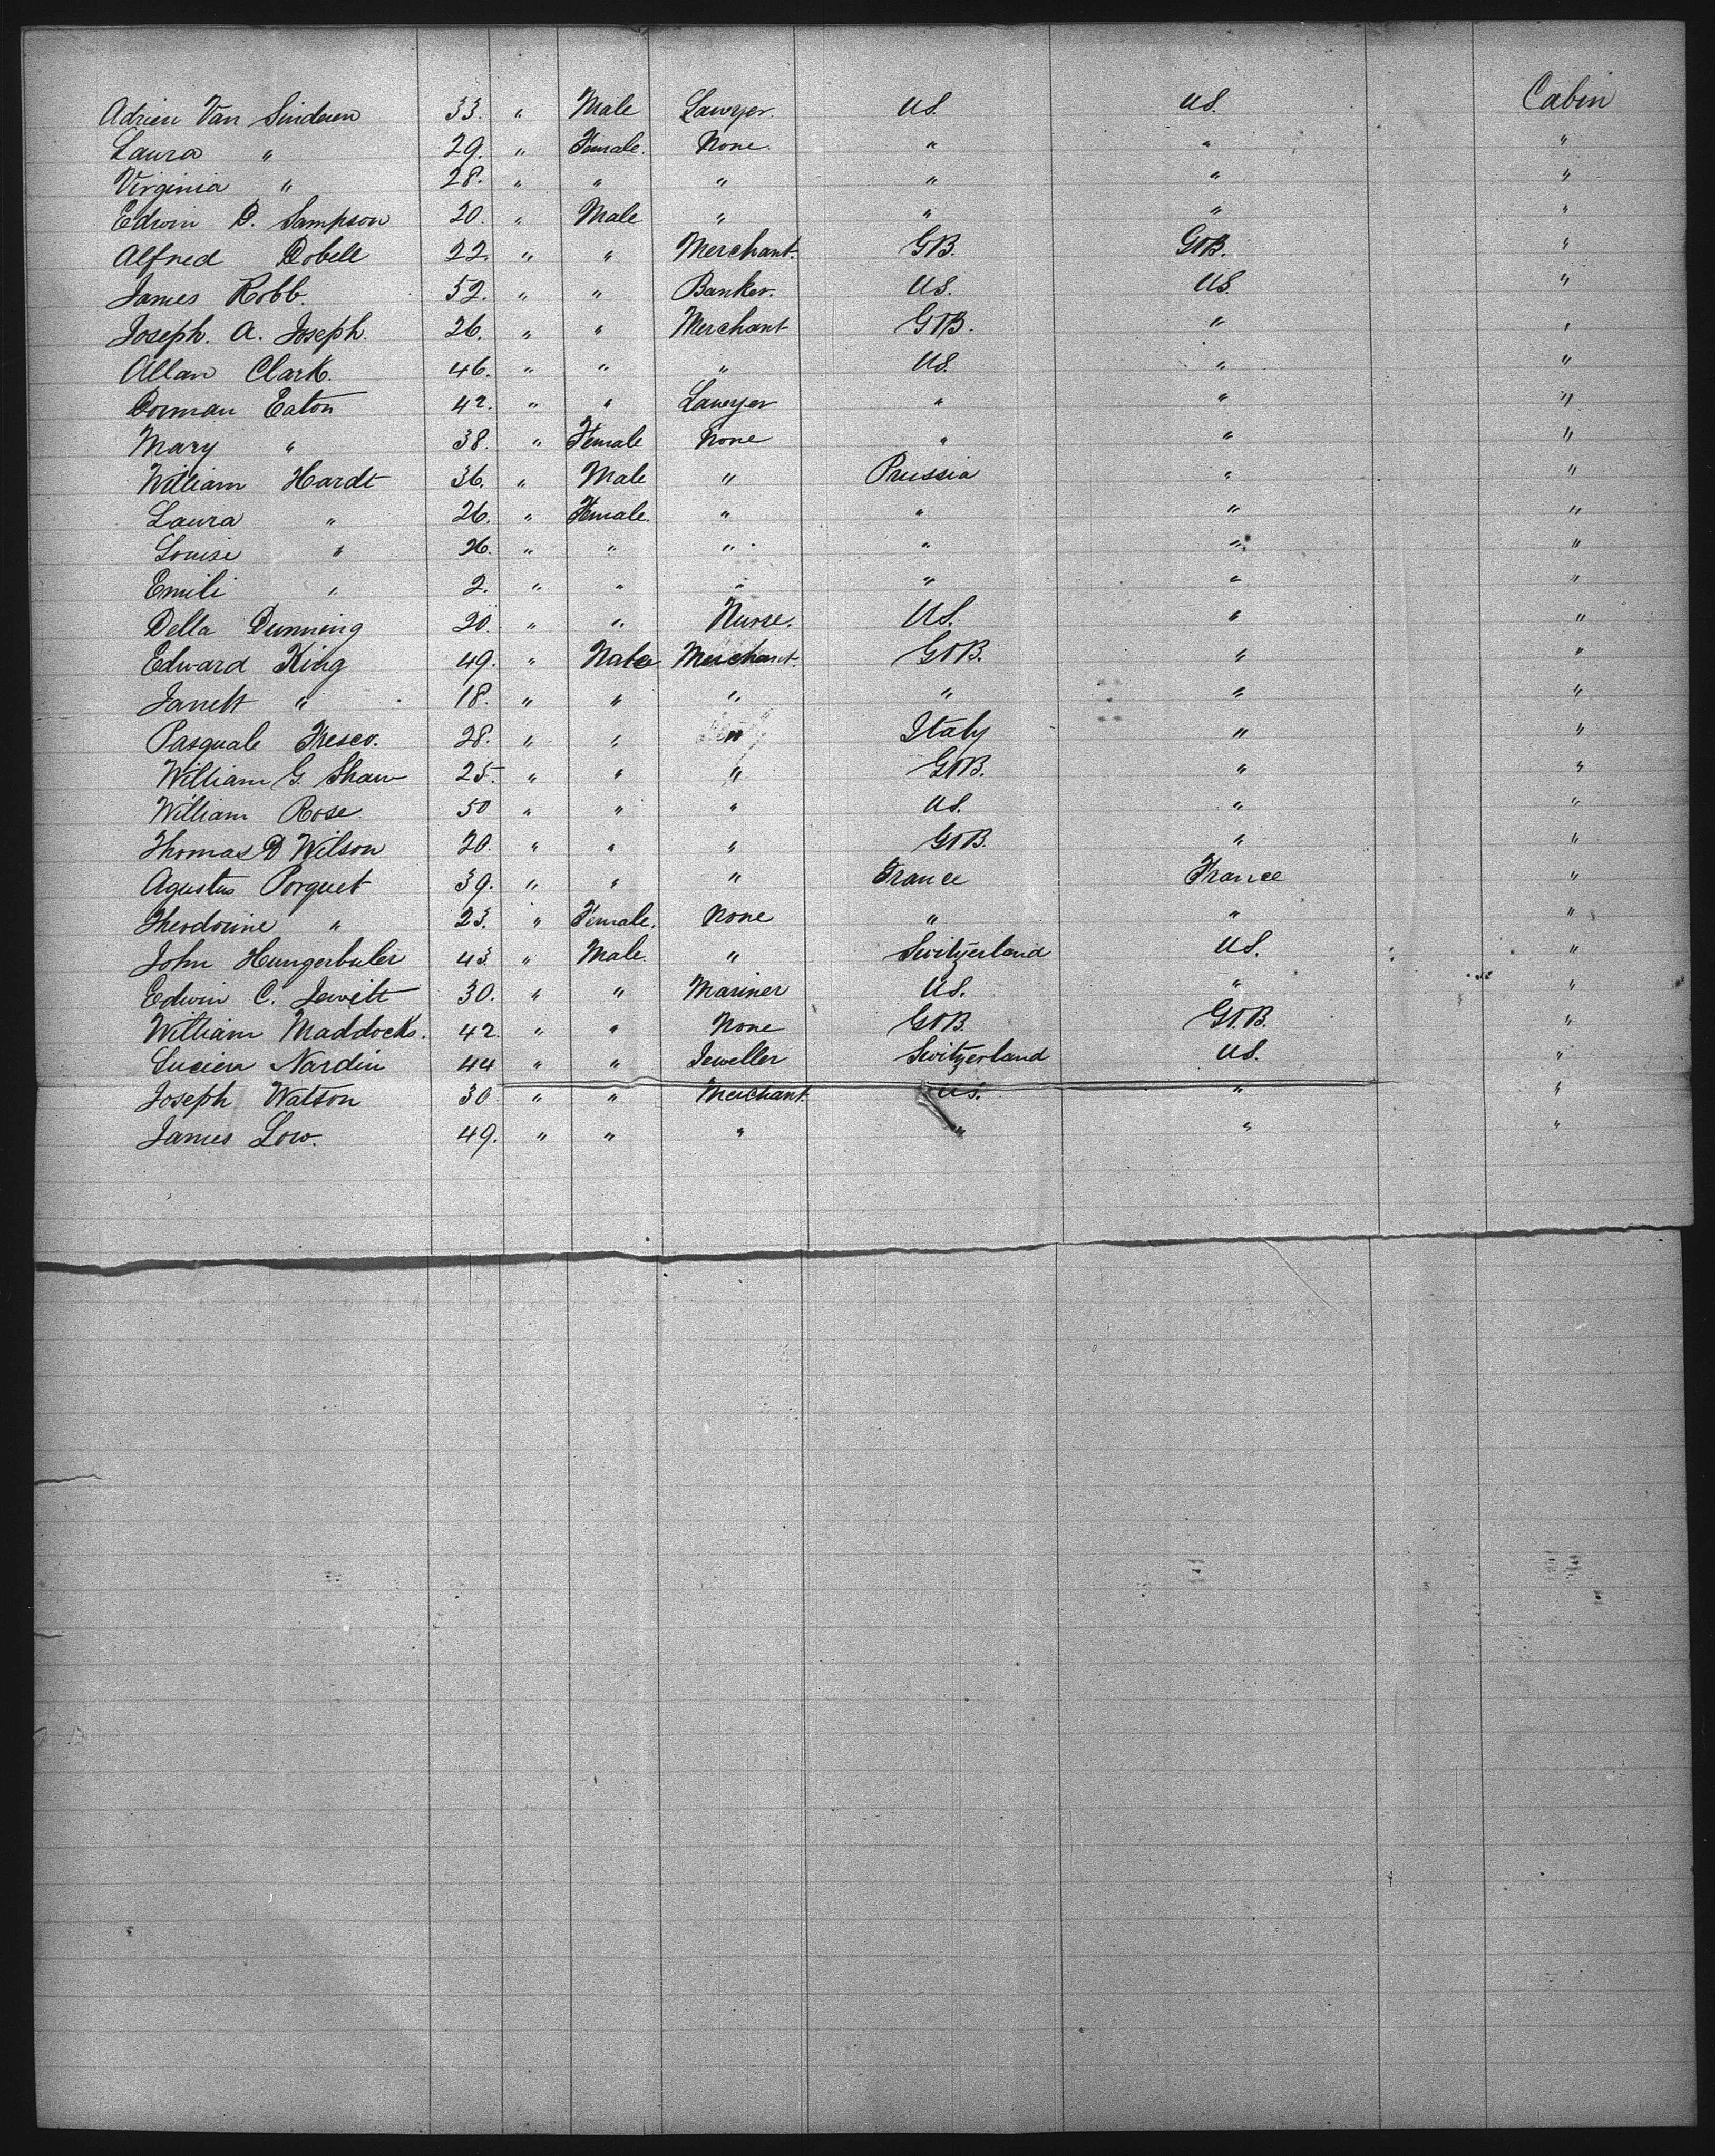 Adrien Van Sinderen 33. " Male Lawyer. US. US. Cabin
Laura " 29. " Female. None. " " "
Virginia " 28. " " " " " "
Edwin D. Sampson 20. " Male " " " "
Alfred Dobell 22. " " Merchant. GtB. GtB. "
James Robb. 52. " " Banker. US. US. "
Joseph. A. Joseph. 26. " " Merchant GtB. " "
Allan Clark. 46. " " " US. " "
Dorman Eaton 42. " " Lawyer " " "
Mary " 38. " Female None " " "
William Hardt 36. " Male " Prussia " "
Laura " 26. " Female. " " " "
Louise " 26. " " " " " "
Emili " 2. " " " " " "
Della Dunning 20. " " Nurse. US. " "
Edward King 49. " Male Merchant. GtB. " "
Jarrett " 18. " " " " " "
Pasquale Fresco. 28. " " " Italy " "
William G. Shaw 25. " " " GtB. " "
William Rose. 50 " " " US. " "
Thomas D Wilson 20. " " " GtB. " "
Agustus Porquet 39. " " " France France "
Theodorine " 23. " Female. None " " "
John Hungerbuler 43. " Male. " Switzerland US. "
Edwin C. Jewett 30. " " Mariner US. " "
William Maddocks. 42. " " None GtB. Gt.B. "
Lucien Nardin 44 " " Jeweller Switzerland US. "
Joseph Watson 30 " " Merchant. US. " "
James Low. 49. " " " " " "